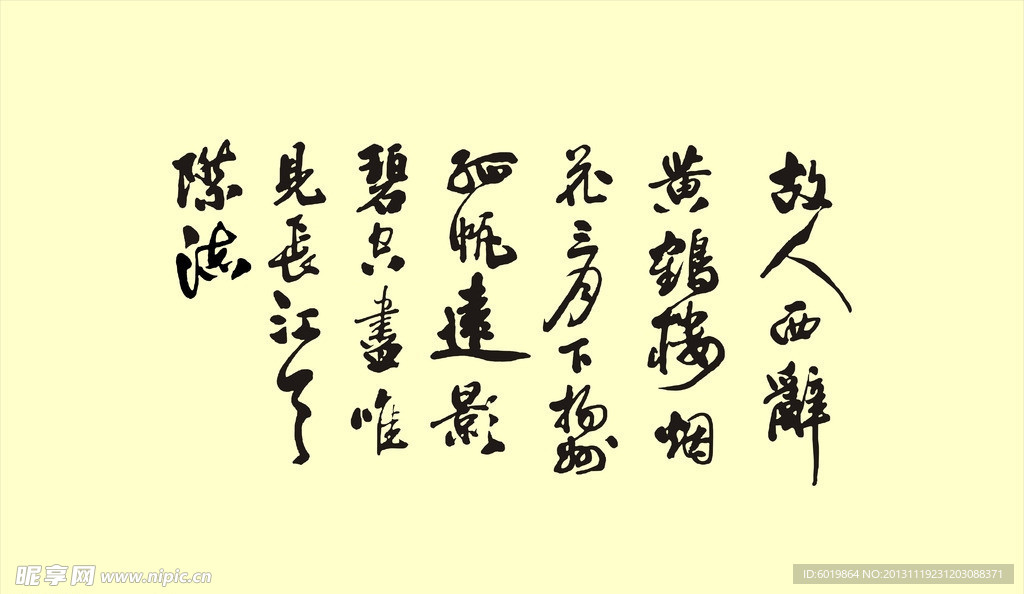 故人西辭
黄鶴楼烟
花三月下扬州
孤帆遠影
碧空盡唯
見長江天
際流
昵享网 www.nipic.cn
ID:6019864 NO:20131119231203088371